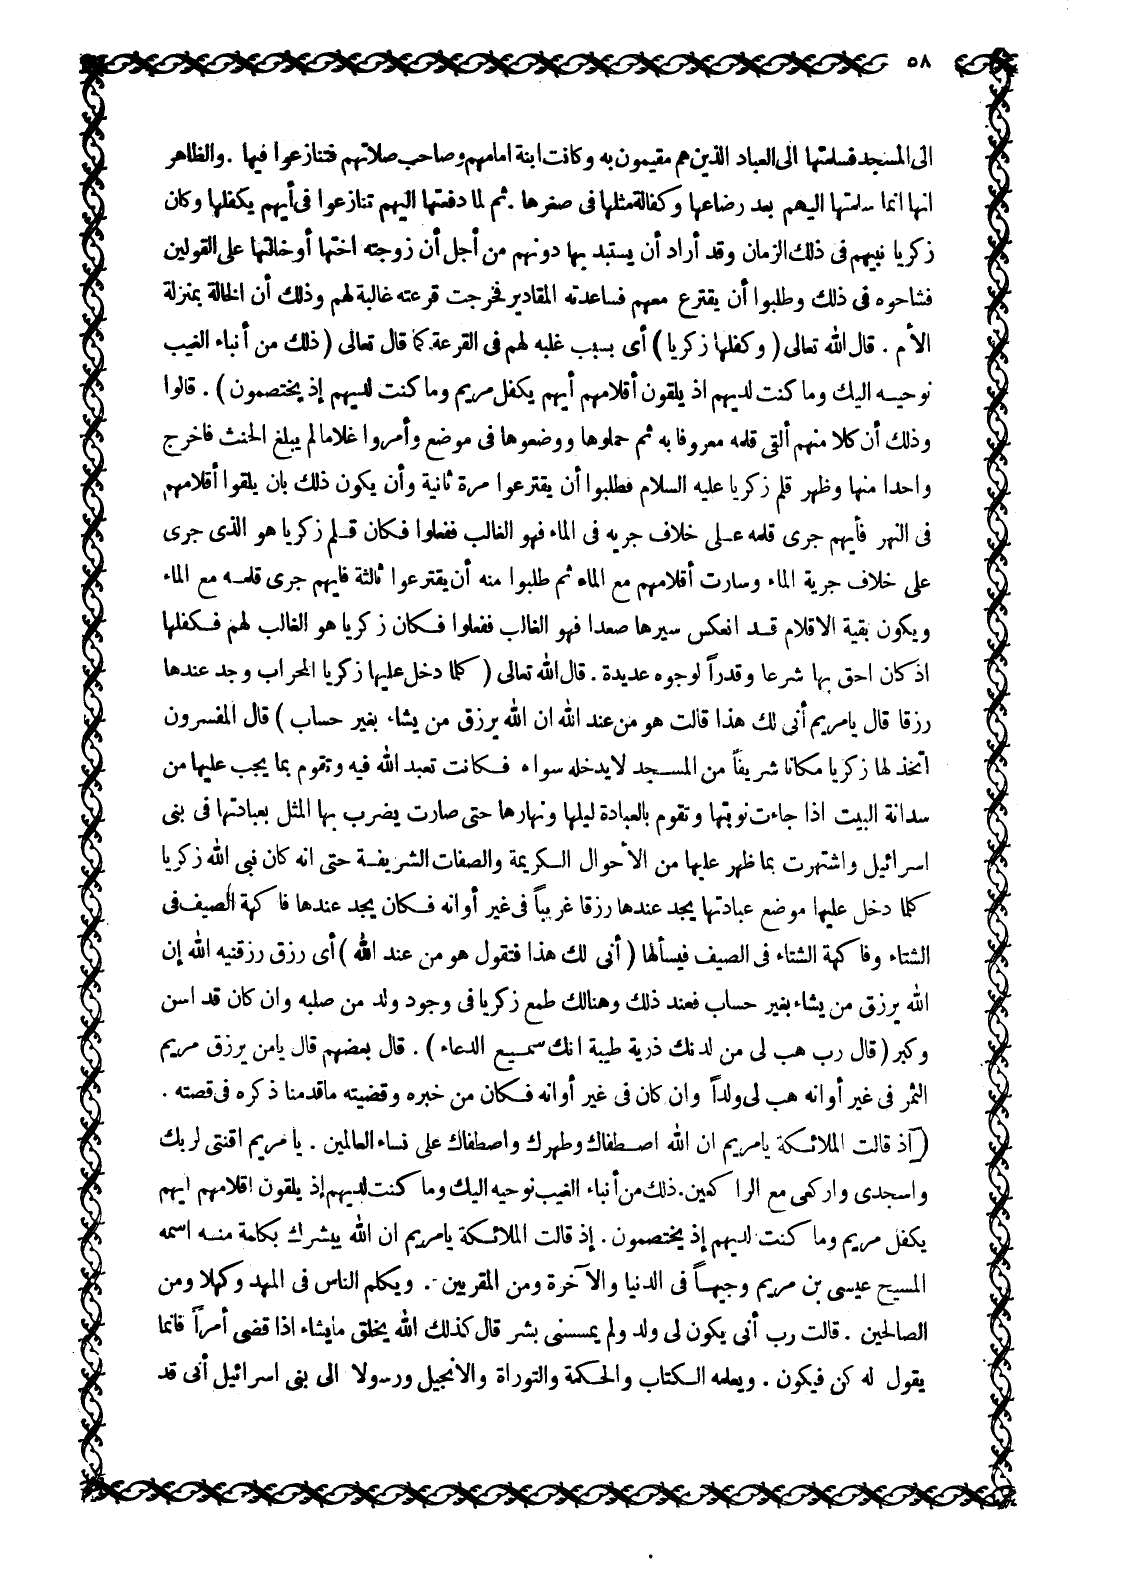 ٥٨
الى المسجد فسلمتها الى العباد الذين هم مقيمون به وكانت ابنة امامهم وصاحب صلاتهم فتنازعوا فيها . والظاهر
انها انما سلمتها اليهم بعد رضاعها وكفالة مثلها فى صغرها . ثم لما دفعتها اليهم تنازعوا فى أيهم يكفلها وكان
زكريا نبيهم فى ذلك الزمان وقد أراد أن يستبد بها دونهم من أجل أن زوجته اختها أو خالتها على القولين
فشاحوه فى ذلك وطلبوا أن يقترع معهم فساعدته المقادير فخرجت قرعته غالبة لهم وذلك أن الخالة بمنزلة
الأم . قال الله تعالى ( وكفلها زكريا ) أى بسبب غلبه لهم فى القرعة كما قال تعالى ( ذلك من أنباء الغيب
نوحيه اليك وما كنت لديهم اذ يلقون أقلامهم أيهم يكفل مريم وما كنت لديهم إذ يختصمون ) . قالوا
وذلك أن كلا منهم ألقى قلمه معروفا به ثم حملوها ووضعوها فى موضع وأمروا غلاما لم يبلغ الحنث فاخرج
واحدا منها وظهر قلم زكريا عليه السلام فطلبوا أن يقترعوا مرة ثانية وأن يكون ذلك بان يلقوا أقلامهم
فى النهر فأيهم جرى قلمه على خلاف جريه فى الماء فهو الغالب ففعلوا فكان قلم زكريا هو الذى جرى
على خلاف جرية الماء وسارت أقلامهم مع الماء ثم طلبوا منه أن يقترعوا ثالثة فايهم جرى قلمه مع الماء
ويكون بقية الاقلام قد انعكس سيرها صعدا فهو الغالب ففعلوا فكان زكريا هو الغالب لهم فكفلها
اذ كان احق بها شرعا وقدراً لوجوه عديدة . قال الله تعالى ( كلما دخل عليها زكريا المحراب وجد عندها
رزقا قال يامريم أنى لك هذا قالت هو من عند الله ان الله يرزق من يشاء بغير حساب ) قال المفسرون
اتخذ لها زكريا مكانا شريفاً من المسجد لايدخله سواه فكانت تعبد الله فيه وتقوم بما يجب عليها من
سدانة البيت اذا جاءت نوبتها وتقوم بالعبادة ليلها ونهارها حتى صارت يضرب بها المثل بعبادتها فى بنى
اسرائيل واشتهرت بما ظهر عليها من الأحوال الكريمة والصفات الشريفة حتى انه كان نبى الله زكريا
كلما دخل عليها موضع عبادتها يجد عندها رزقا غريباً فى غير أوانه فكان يجد عندها فاكهة الصيف فى
الشتاء وفاكهة الشتاء فى الصيف فيسألها ( أنى لك هذا فتقول هو من عند الله ) أى رزق رزقنيه الله إن
الله يرزق من يشاء بغير حساب فعند ذلك وهنالك طمع زكريا فى وجود ولد من صلبه وان كان قد اسن
وكبر ( قال رب هب لى من لدنك ذرية طيبة انك سميع الدعاء ) . قال بعضهم قال يامن يرزق مريم
الثمر فى غير أوانه هب لى ولداً وان كان فى غير أوانه فكان من خبره وقضيته ماقدمنا ذكره فى قصته .
( اذ قالت الملائكة يامريم ان الله اصطفاك وطهرك واصطفاك على نساء العالمين . يا مريم اقنتى لربك
واسجدى واركعى مع الراكعين . ذلك من أنباء الغيب نوحيه اليك وما كنت لديهم إذ يلقون اقلامهم ايهم
يكفل مريم وما كنت لديهم إذ يختصمون . إذ قالت الملائكة يامريم ان الله يبشرك بكلمة منه اسمه
المسيح عيسى بن مريم وجيهاً فى الدنيا والآخرة ومن المقربين . ويكلم الناس فى المهد وكهلا ومن
الصالحين . قالت رب أنى يكون لى ولد ولم يمسسنى بشر قال كذلك الله يخلق مايشاء اذا قضى أمراً فانما
يقول له كن فيكون . ويعلمه الكتاب والحكمة والتوراة والانجيل ورسولا الى بنى اسرائيل أنى قد